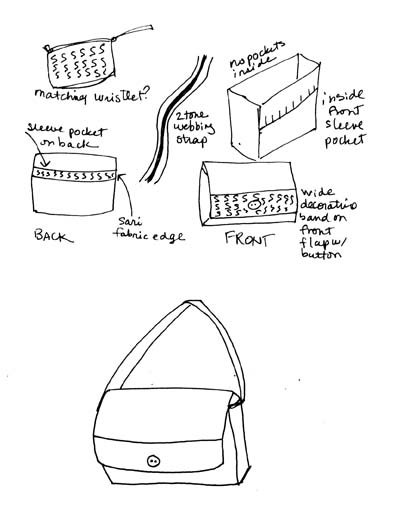 matching wristlet?
2 tone
webbing
strap
no pockets
inside
inside
front
sleeve
pocket
sleeve pocket
on back
sari
fabric edge
BACK
wide
decorative
band on
front
flap w/
button
FRONT